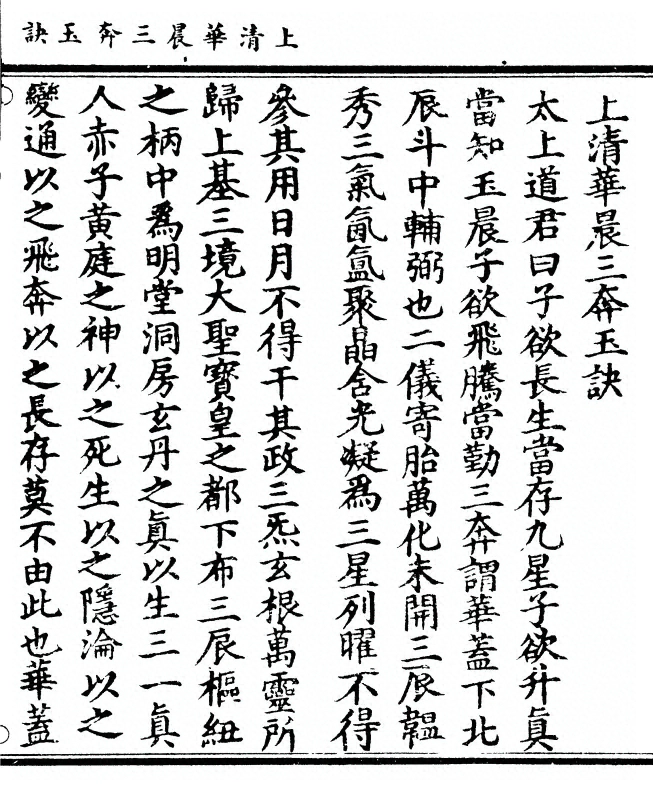 上清華晨三奔玉訣
上清華晨三奔玉訣
太上道君曰子欲長生當存九星子欲升眞
當知玉晨子欲飛騰當勤三奔謂華蓋下北
辰斗中輔弼也二儀寄胎萬化未開三辰韞
秀三氣氤氳聚晶含光凝爲三星列曜不得
參其用日月不得干其政三炁玄根萬靈所
歸上基三境大聖寶皇之都下布三辰樞紐
之柄中爲明堂洞房玄丹之眞以生三一眞
人赤子黄庭之神以之死生以之隱淪以之
變通以之飛奔以之長存莫不由此也華蓋